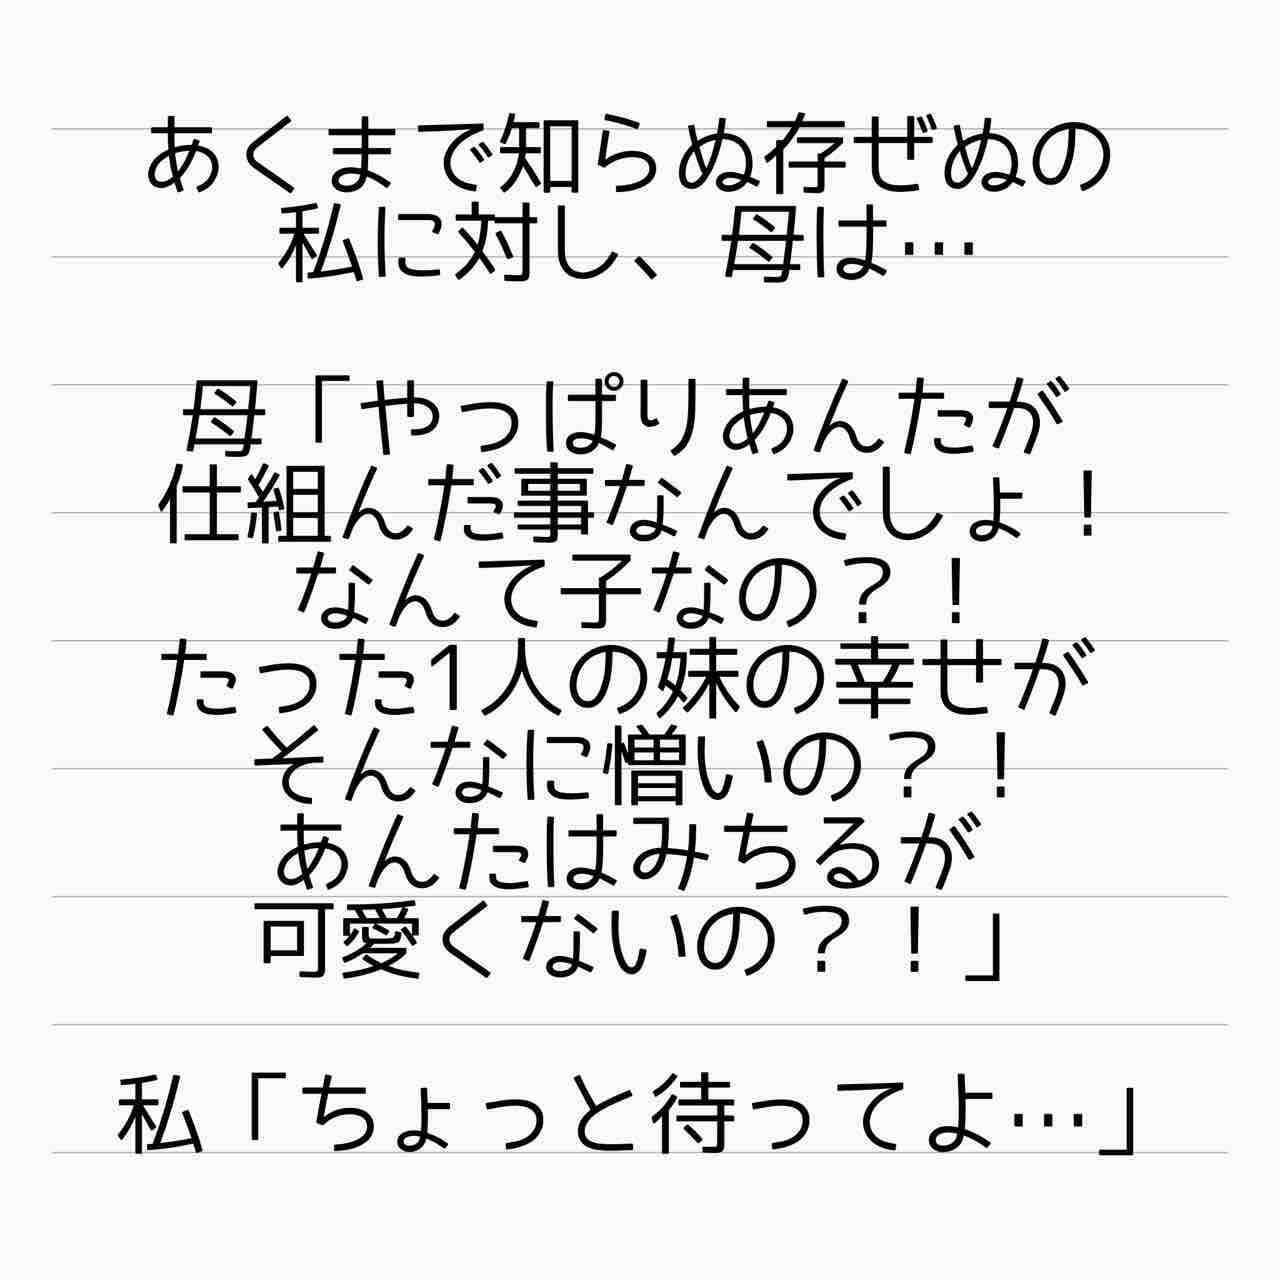 あくまで知らぬ存ぜぬの
私に対し、母は…
母「やっぱりあんたが
仕組んだ事なんでしょ！
なんて子なの？！
たった1人の妹の幸せが
そんなに憎いの？！
あんたはみちるが
可愛くないの？！」
私「ちょっと待ってよ…」